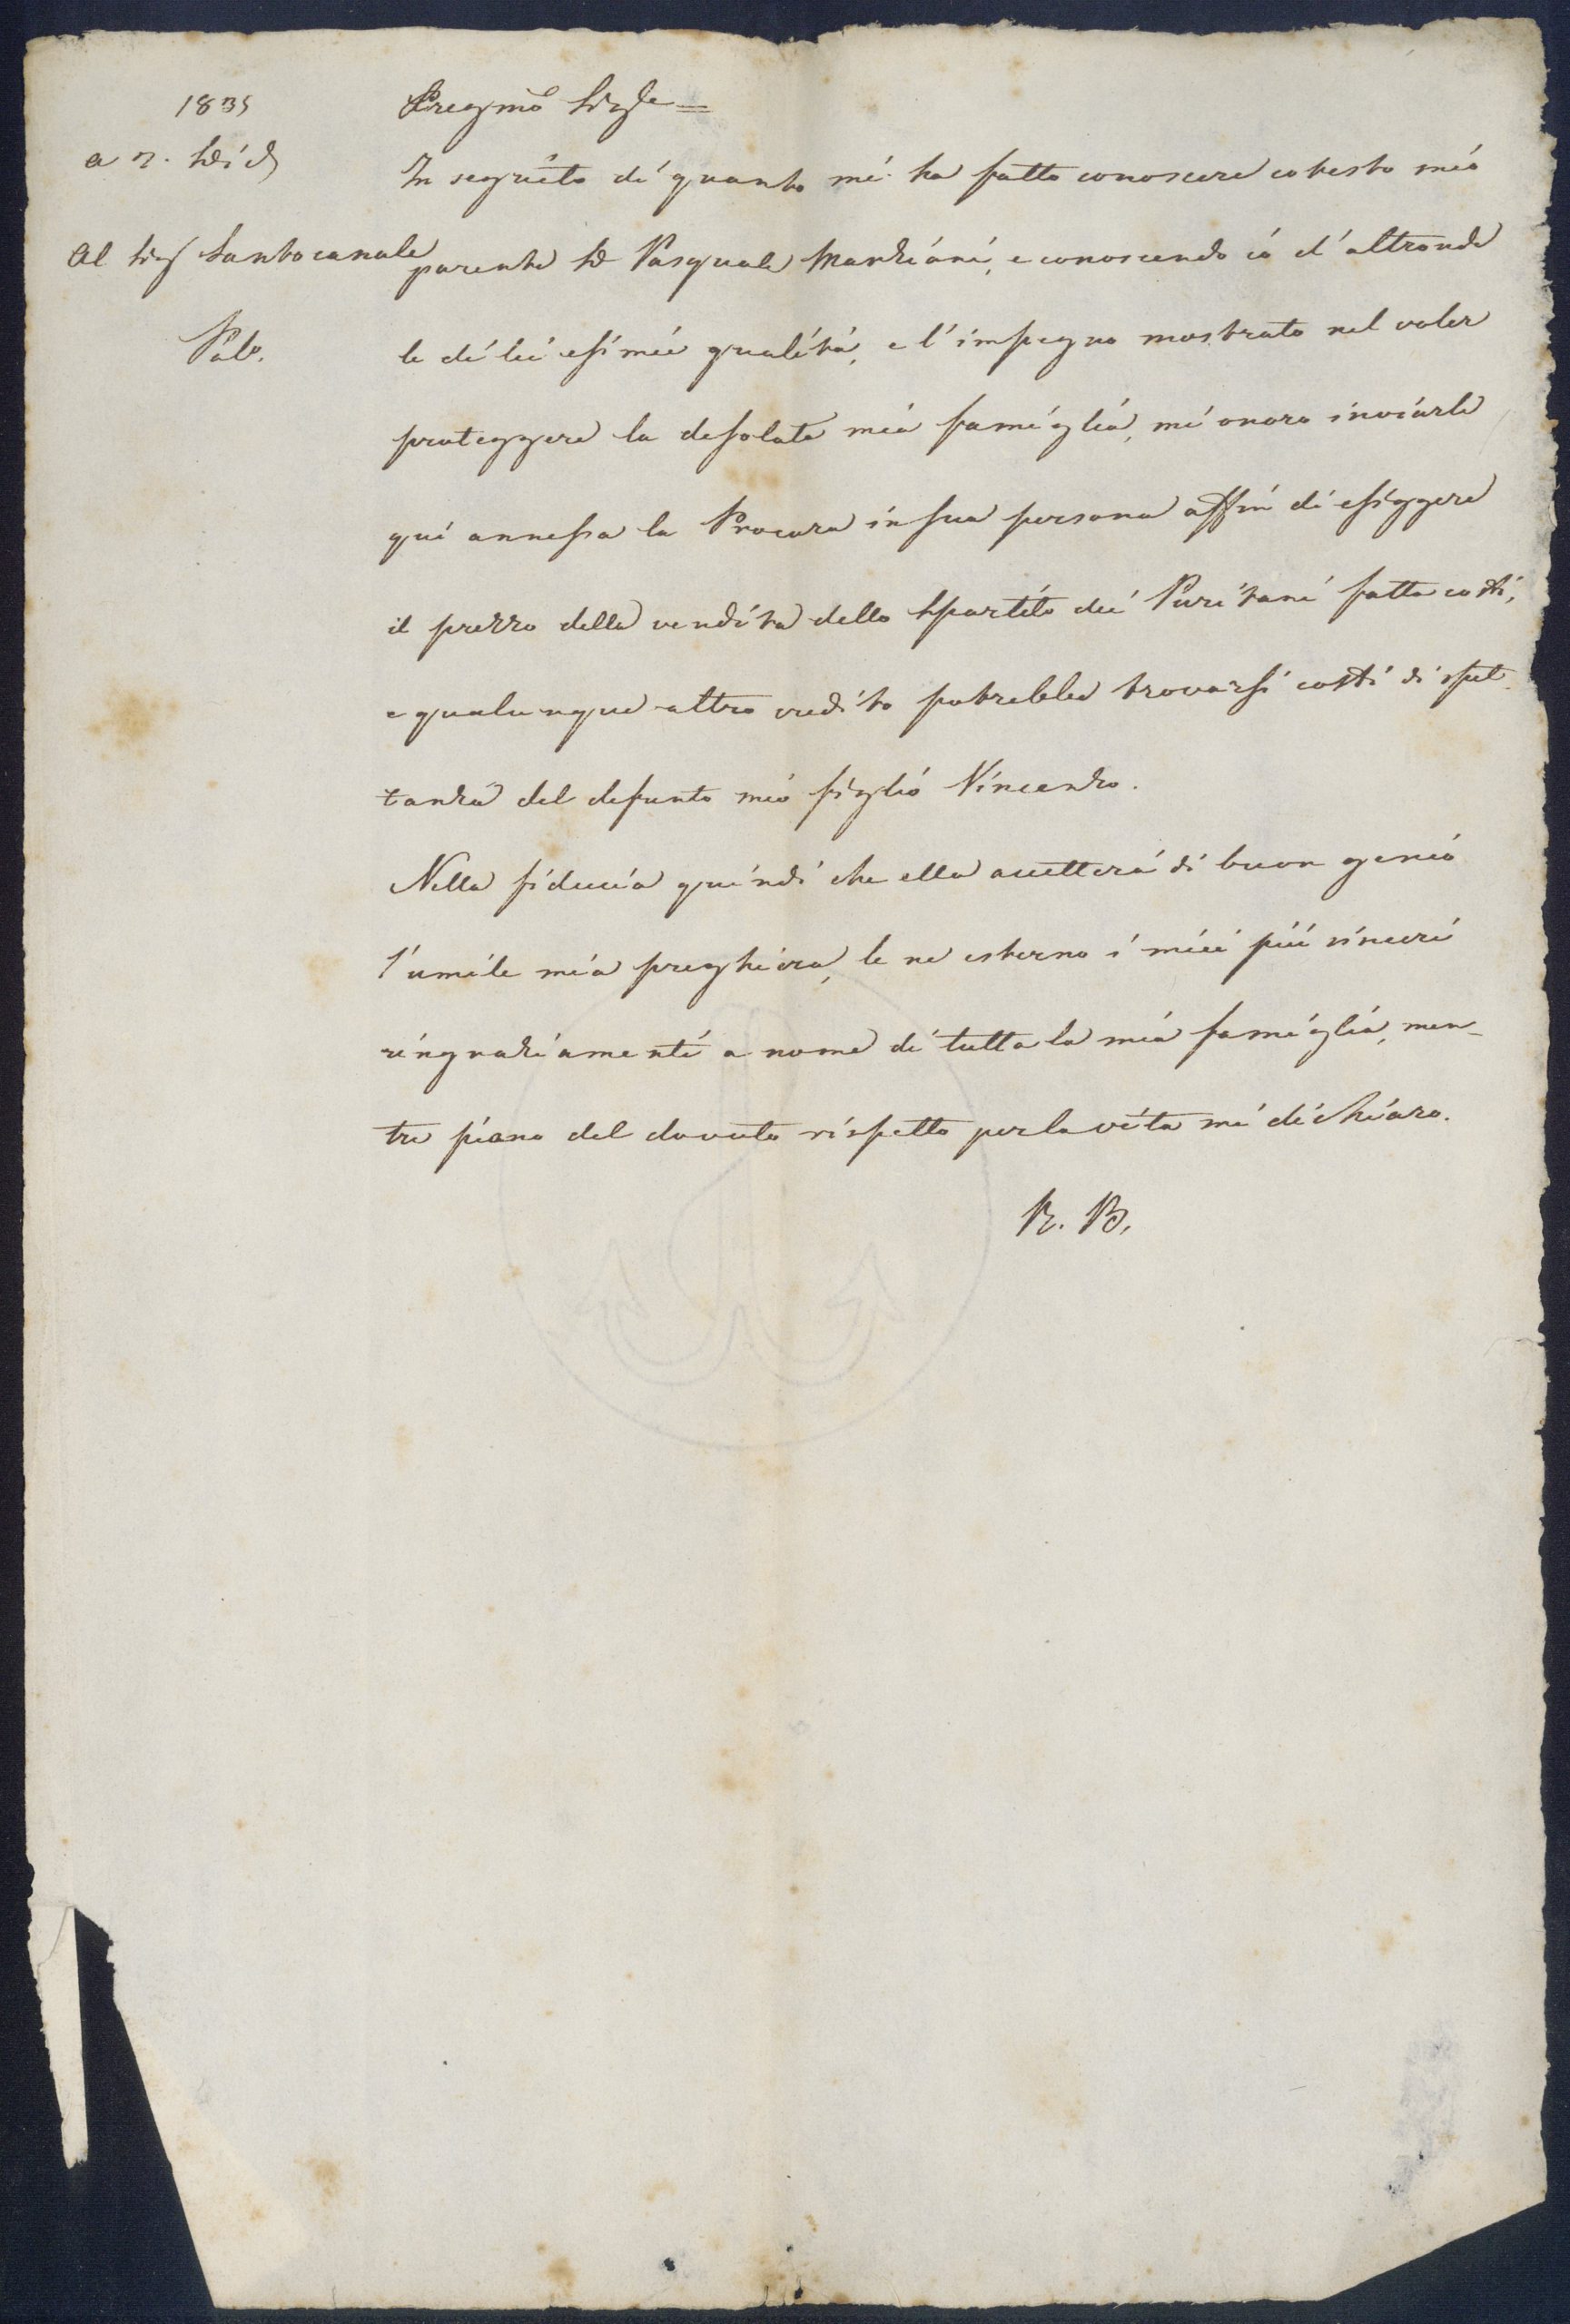 1835
a 7. Dic
Al Sig Santocanale
Pal.
Pregmo Sige =
In seguito di quanto mi ha fatto conoscere cotesto mio
parente D Pasquale Manziani, e conoscendo io d'altronde
le di lei esimie qualità, e l'impegno mostrato nel voler
proteggere la desolata mia famiglia, mi onoro inviarle
qui annessa la Procura in sua persona affin di esiggere
il prezzo della vendita dello Spartito dei Puritani fatta costì,
e qualunque altro credito potrebbe trovarsi costì di spet-
tanza del defunto mio figlio Vincenzo.
Nella fiducia quindi che ella accetterà di buon genio
l'umile mia preghiera, le ne esterno i miei più sinceri
ringraziamenti a nome di tutta la mia famiglia, men-
tre pieno del dovuto rispetto per la vita mi dichiaro.
R. B.